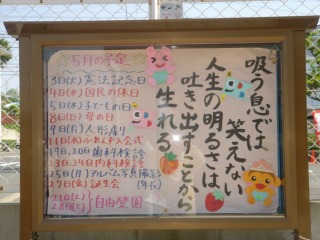 吸う息では
笑えない
人生の明るさは、
吐き出すことから
生れる。
5月の予定
3日(火)憲法記念日
4日(水)国民の休日
5日(木)子どもの日
8日(日)母の日
9日(月)人形
11日(水)入会式
19日、20日歯科検診
23日、24日内科検診
25日(月)アルバム写真撮影
(年長)
27日(金)誕生会
21日(土)
28日(土)
自由登園